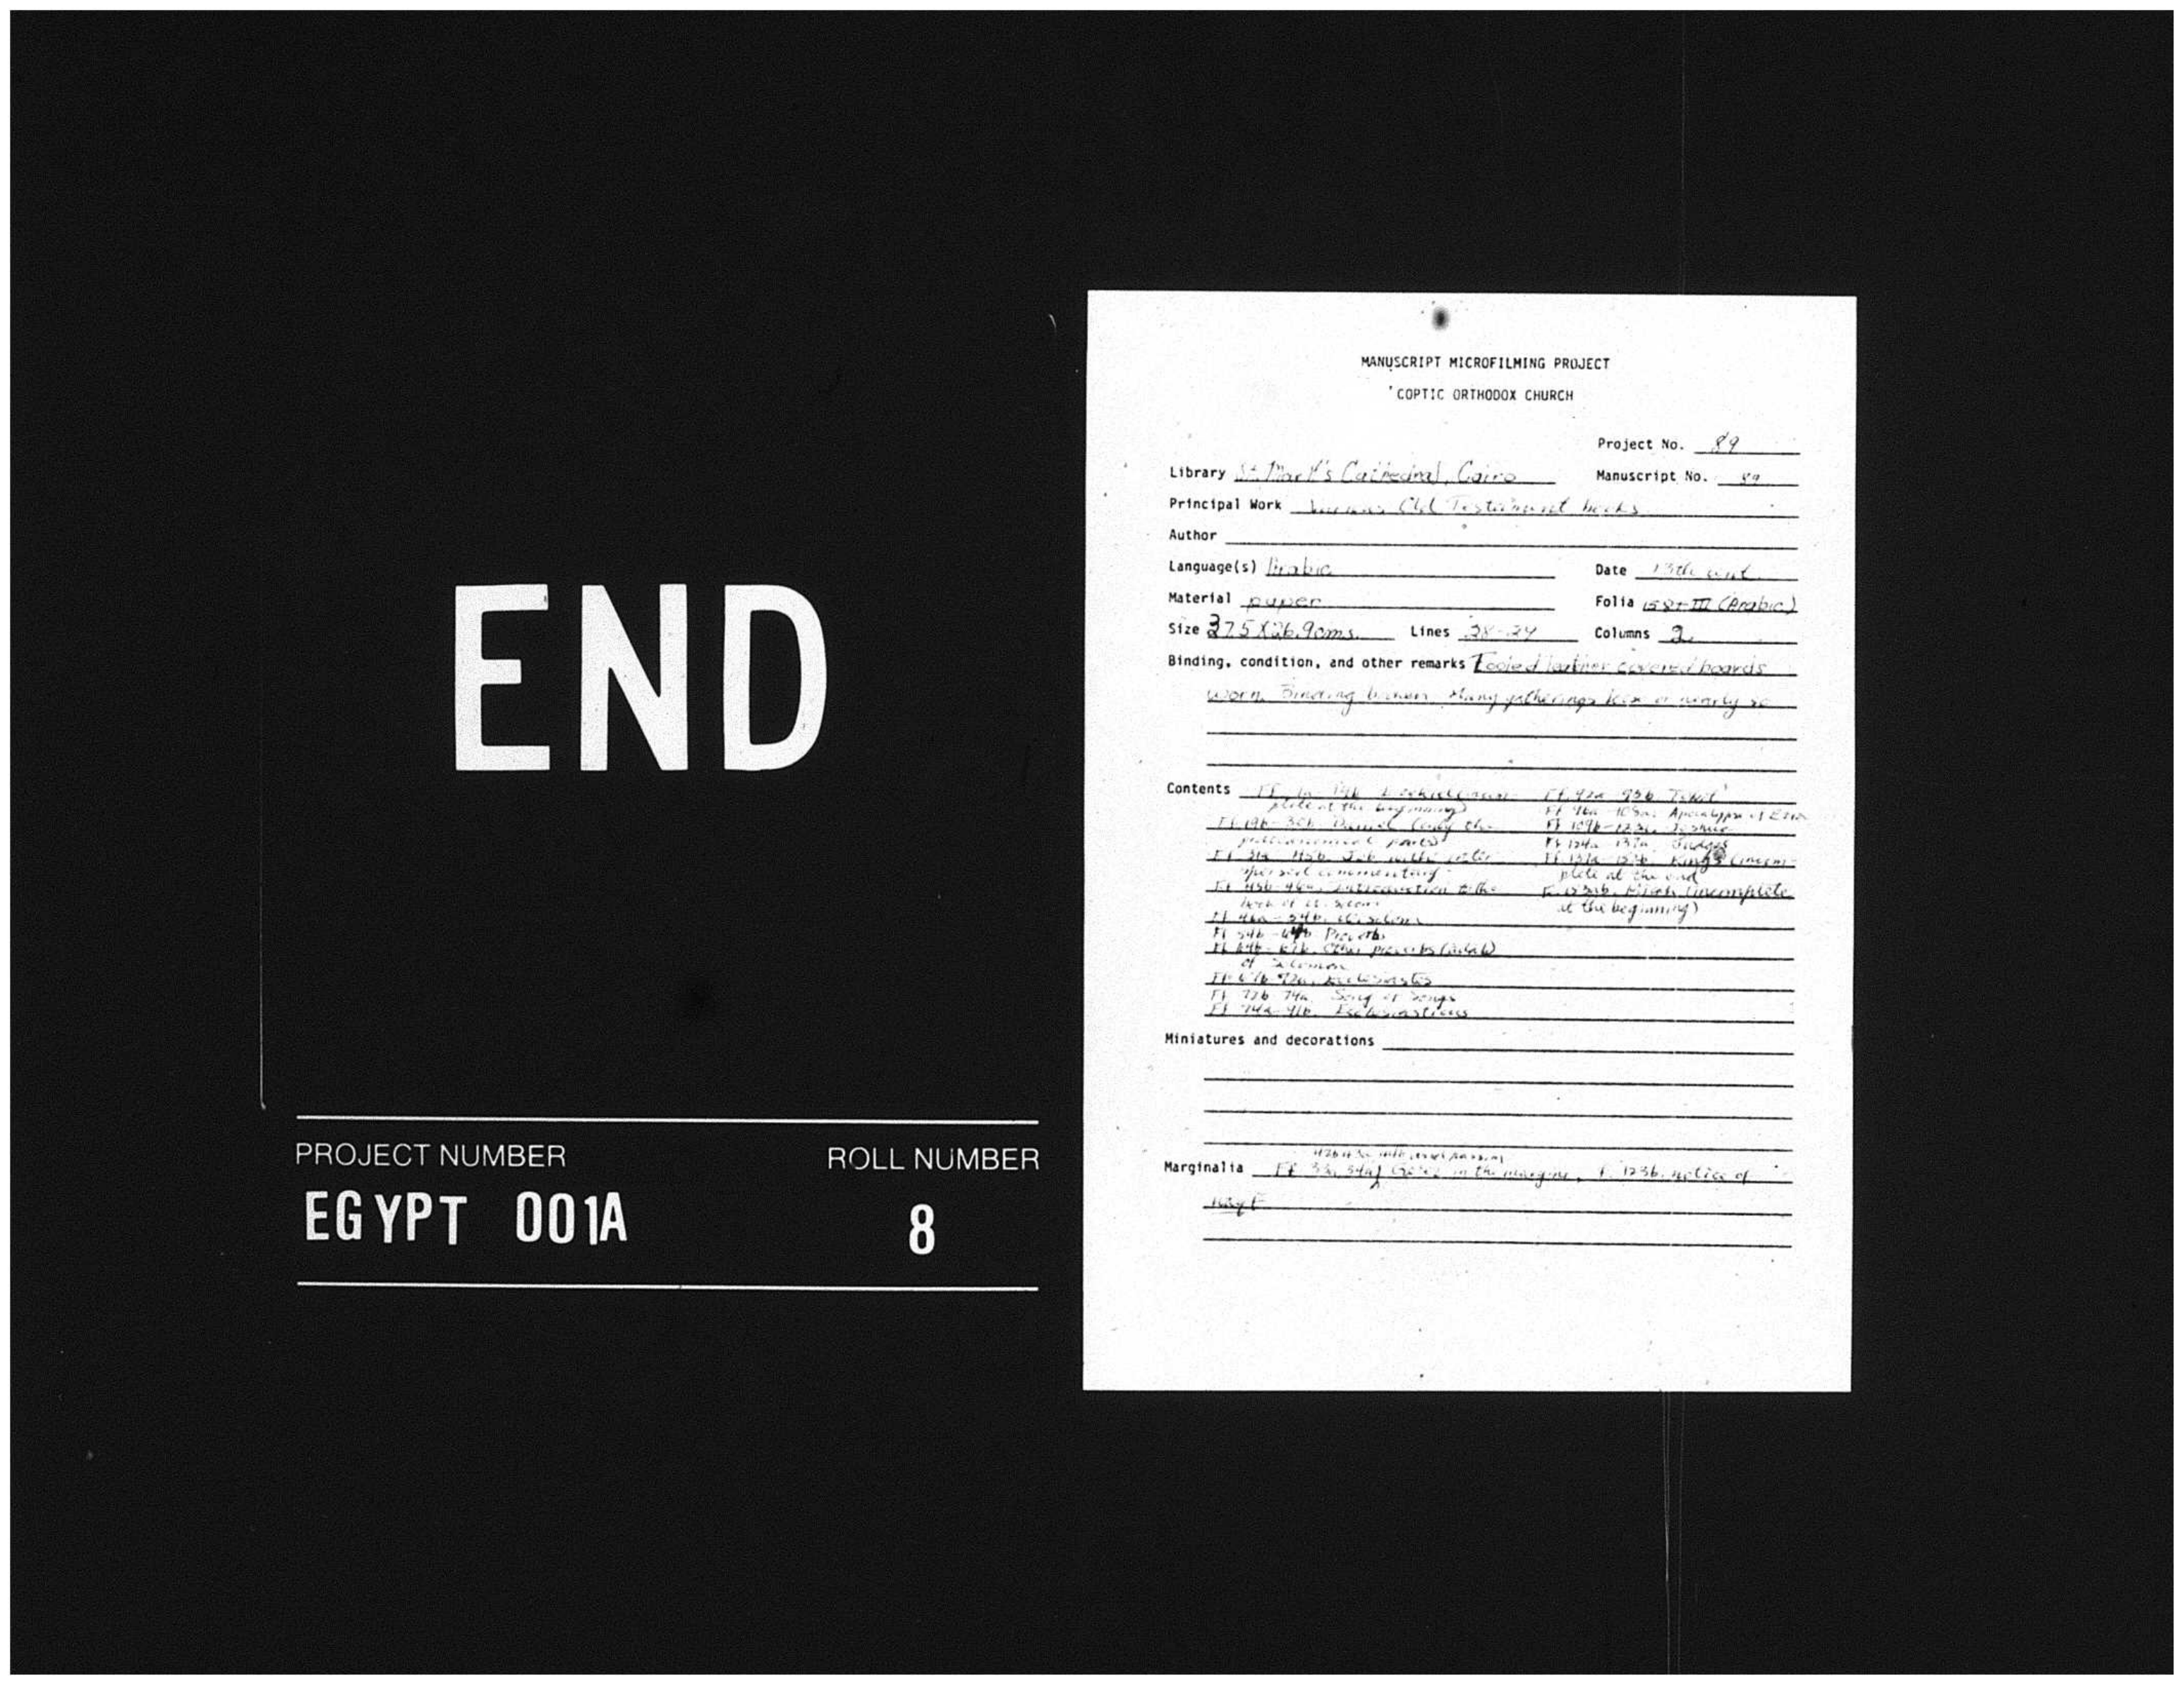 END
PROJECT NUMBER
ROLL NUMBER
EGYPT 001A
8
MANUSCRIPT MICROFILMING PROJECT
COPTIC ORTHODOX CHURCH
Project No. 89
Library St. Mark's Cathedral, Cairo
Manuscript No. 89
Principal Work Various Old Testament books
Author
Language(s) Arabic
Date 13th cent.
Material paper
Folia 158+III (Arabic)
Size 37.5 X 26.9 cms.
Lines 28-24
Columns 2
Binding, condition, and other remarks Tooled leather covered boards
worn. Binding broken. Many gatherings loose or nearly so
Contents Ff. 1a-19b Ezekiel (incom-
plete at the beginning)
Ff. 19b-30b Daniel (only the
parts)
Job with inter-
spersed commentary
Ff. 45b-46a. Introduction to the
book of Wisdom
Ff. 46a-54b. Wisdom
Ff 54b-64b Proverbs
Ff. 64b-67b. Other proverbs (adab)
of Solomon
Ff. 67b-72a. Ecclesiastes
Ff. 72b-74a. Song of Songs
Ff. 74a-91b. Ecclesiasticus
Ff. 92a-95b Tobit
Ff 96a-108a. Apocalypse of Ezra
Ff 109b-123a. Joshua
Ff 124a-137a Judges
Ff. 137a-152b. Kings (incom-
plete at the end
at the beginning)
Miniatures and decorations
Marginalia Ff. 33a, 34a, in the margins, f. 123b, notice of
waqf